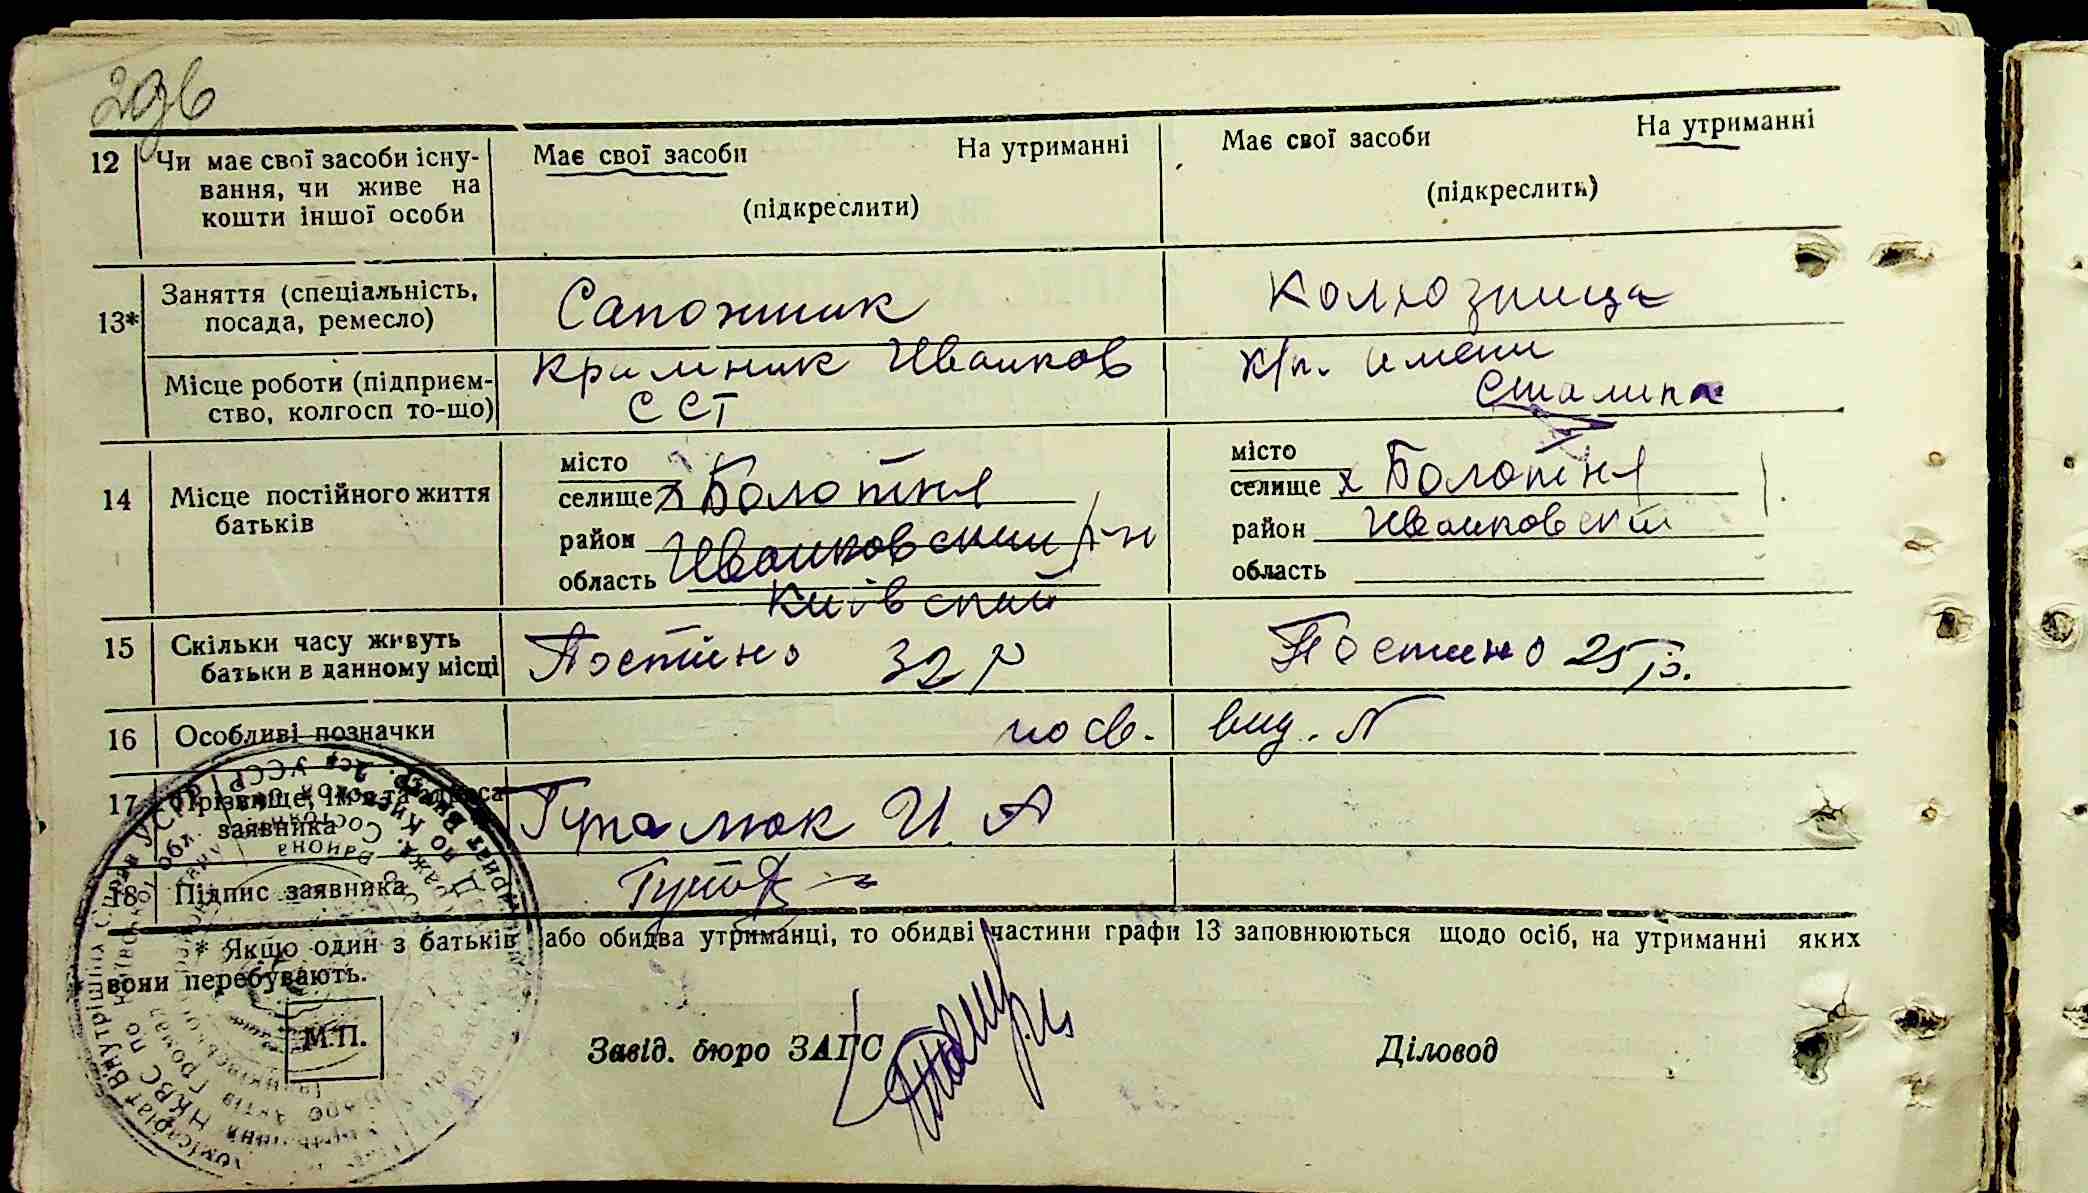 296
12 Чи має свої засоби існу- Має свої засоби На утриманні Має свої засоби На утриманні
вання, чи живе на
кошти іншої особи (підкреслити) (підкреслить)
13* Заняття (спеціальність, Сапожник Колхозница
посада, ремесло)
Місце роботи (підприєм- Иванков х/п. имени
ство, колгосп то-що) ССТ Сталина
14 Місце постійного життя місто місто
батьків селище х Болотня селище х Болотня
район Иванковский р-н район Иванковский
область Київский область
15 Скільки часу живуть Постіно 32 р Постіно 25 р.
батьки в данному місці
16 Особливі позначки по св. вид. N
17 Прізвище, ім'я та адреса
заявника И А
18 Підпис заявника
* Якщо один з батьків або обидва утриманці, то обидві частини графи 13 заповнюються щодо осіб, на утриманні яких
вони перебувають.
М.П. Завід. бюро ЗАГС Діловод